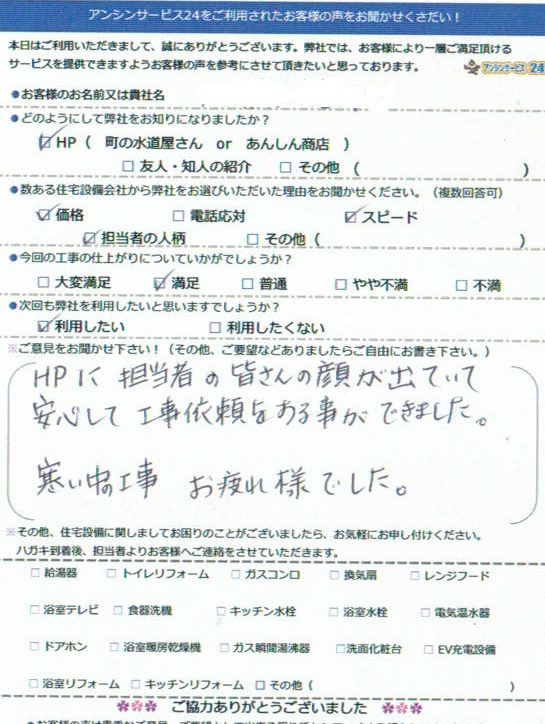 アンシンサービス24をご利用されたお客様の声をお聞かせください！
本日はご利用いただきまして、誠にありがとうございます。弊社では、お客様により一層ご満足頂ける
サービスを提供できますようお客様の声を参考にさせて頂きたいと思っております。 アンシンサービス24
●お客様のお名前又は貴社名
●どのようにして弊社をお知りになりましたか？
☑HP（ 町の水道屋さん or あんしん商店 ）
□友人・知人の紹介 □その他（ ）
●数ある住宅設備会社から弊社をお選びいただいた理由をお聞かせください。（複数回答可）
☑価格 □電話応対 ☑スピード
☑担当者の人柄 □その他（ ）
●今回の工事の仕上がりについていかがでしょうか？
□大変満足 ☑満足 □普通 □やや不満 □不満
●次回も弊社を利用したいと思いますでしょうか？
☑利用したい □利用したくない
※ご意見をお聞かせ下さい！（その他、ご要望などありましたらご自由にお書き下さい。）
HPに 担当者の皆さんの顔が出ていて
安心して 工事依頼をする事ができました。
寒い中の工事 お疲れ様でした。
※その他、住宅設備に関しましてお困りのことがございましたら、お気軽にお申し付けください。
ハガキ到着後、担当者よりお客様へご連絡をさせていただきます。
□給湯器 □トイレリフォーム □ガスコンロ □換気扇 □レンジフード
□浴室テレビ □食器洗機 □キッチン水栓 □浴室水栓 □電気温水器
□ドアホン □浴室暖房乾燥機 □ガス瞬間湯沸器 □洗面化粧台 □EV充電設備
□浴室リフォーム □キッチンリフォーム □その他（ ）
ご協力ありがとうございました